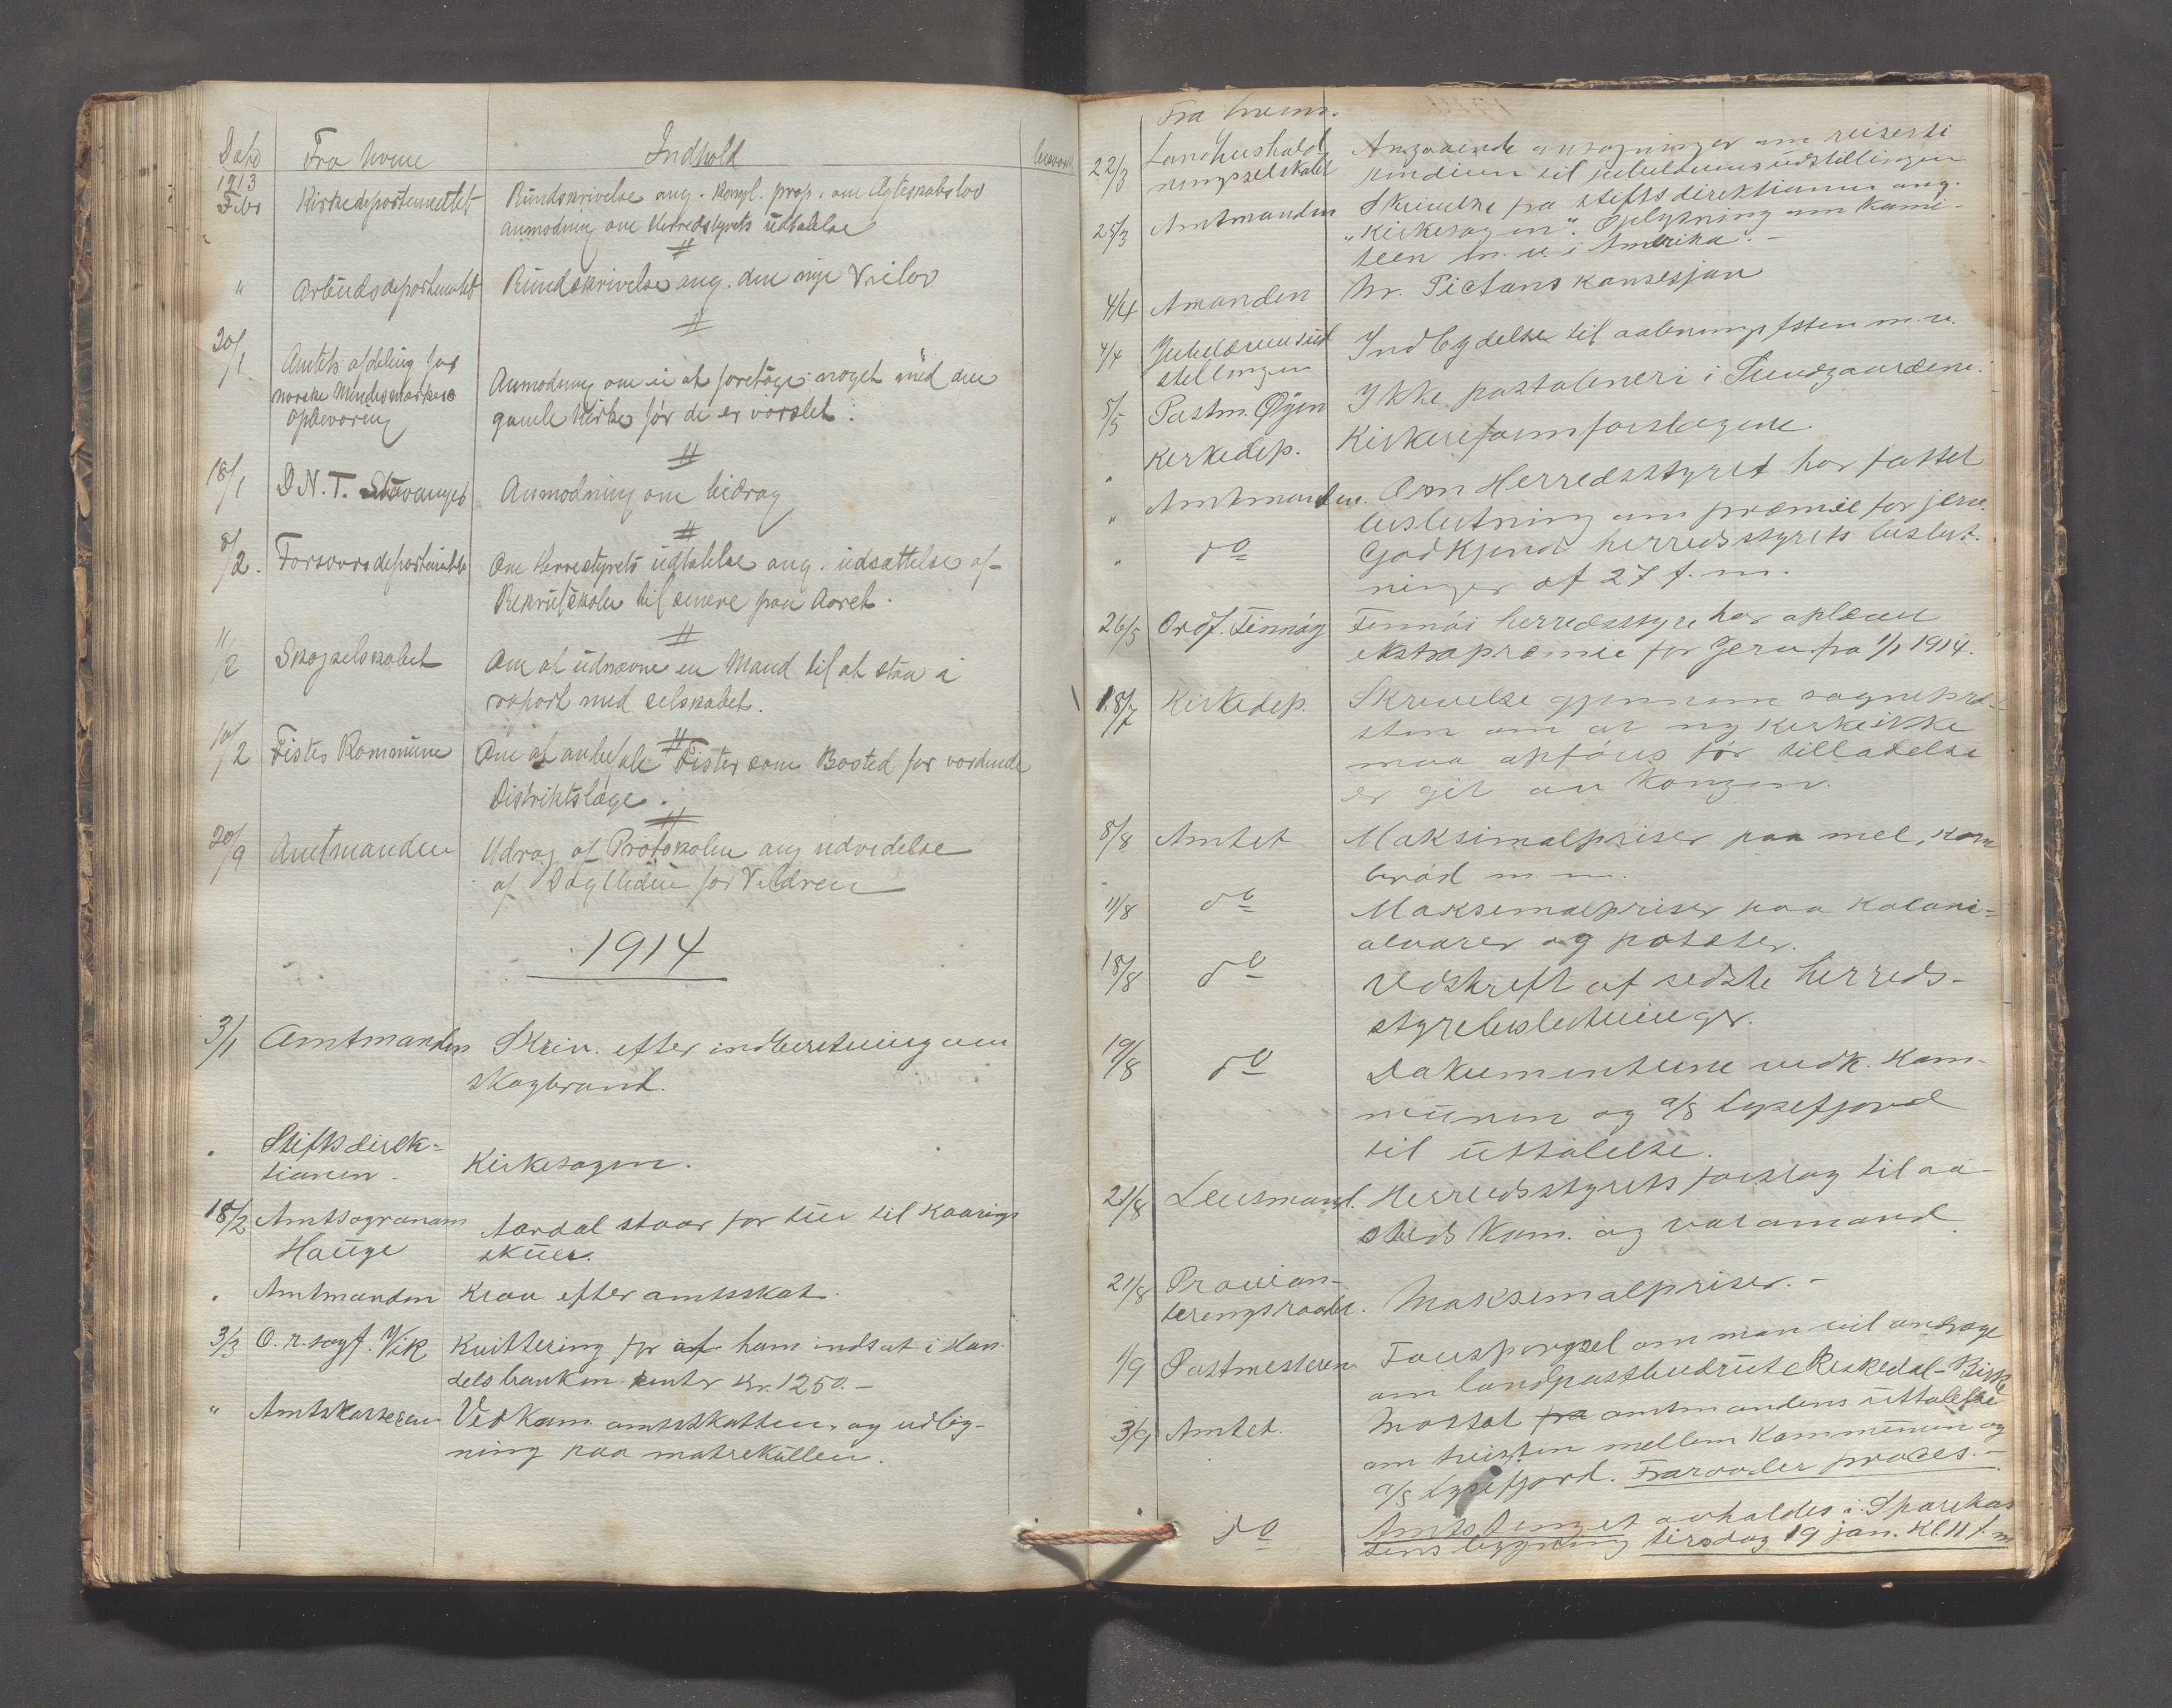 Dato Fra hvem Indhold besvaret
1913
Febr Kirkedepartementet Rundskrivelse ang. kongl. prop. om Ægteskabslov
anmodning om Herredstyrets udtalelse
"  Arbeidsdepartementet Rundskrivelse ang. den nye Veilov
20/1 Amtets afdeling for
norske Mindesmærkers
opbevaring
Anmodning om ei at foretage noget med den
gamle Kirke før de er varslet.
18/1 D.N.T. Stavanger Anmodning om bidrag
8/2. Forsvarsdepartementet Om Herredstyrets udtalelse ang. udsættelse af
Rekrutskolen til senere paa Aaret.
11/2 Skogselskabet Om at udnævne en Mand til at staa i
raport med selskabet.
14/2 Fister Kommune Om at anbefale Fister som Bosted for vordende
Distriktslæge.
20/9 Amtmanden Udrag af Protokolen ang udvidelse
af for Veldren
1914
3/1 Amtmanden Skriv. efter indberetning om
skogbrand.
" Stiftsdirek-
tionen - Kirkesagen.
18/2 Amtsagronom
Hauge
Aardal staar for tur til Kaarings
skuer.
" Amtmanden Krav efter amtsskat.
3/3 O.r.sagf. Vik Kvittering for af ham indsat i Han-
delsbanken renter kr. 1250.-
" Amtskasseren Vedkom. amtsskatten og udlig-
ning paa matrekullen.
Fra hvem.
22/3 Landhushold
ningsselskabet
Angaaende ansøgninger om reisesti
pendium til jubilæumsudstillingen
25/3 Amtmanden Skrivelse fra stiftsdirektionen ang.
"Kirkesagen". Oplysning om Komi-
teen m.v. i Amerika.-
4/4 Amanden Hr. Pictons konsesjon
4/4 Jubilæumsud
stillingen
Indbydelse til aabningsfsten m.v.
5/5 Postm. Øyen Ikke postaabneri i Sundgaardene.
" Kirkedep. Kirkereformforslagene
" Amtmanden. Om Herredsstyret har fattet
beslutning om præmie for jerv.
" do Godkjend herredsstyrets beslut-
ninger af 27 f.m.
26/5 Ordf. Finnøy Finnøi herredsstyre har ophævet
ekstrapræmie for Jerv fra 1/1 1914.
18/7 Kirkedep. Skrivelse gjennem sognepre-
sten om at ny kirke ikke
maa opføres før tilladelse
er git av kongen.
8/8 Amtet Maksimalpriser paa mel, korn
brød m.m.
11/8 do Maksimalpriser paa koloni-
alvarer og poteter.
18/8 do Udskrift af sidste herreds-
styrebeslutninger.
19/8 do Dokumenterne vedk. kom-
munen og a/s Lysefjord
til uttalelse.
21/8 Lensmand. Herredsstyrets forslag til aa-
steds kom. og varamand.
21/8 Provian-
teringsraadet. Maksimalpriser.-
1/9 Postmesteren. Forespørgsel om man vil andrage
om landpostbudrute Riskedal-
3/9 Amtet. Mottat fra amtmandens uttalelse
om tvisten mellem Kommunen og
a/s Lysefjord. Fraraader proces.-
" do Amtstinget avholdes i Sparekas
sens bygning tirsdag 19 jan. Kl. 11 f.m